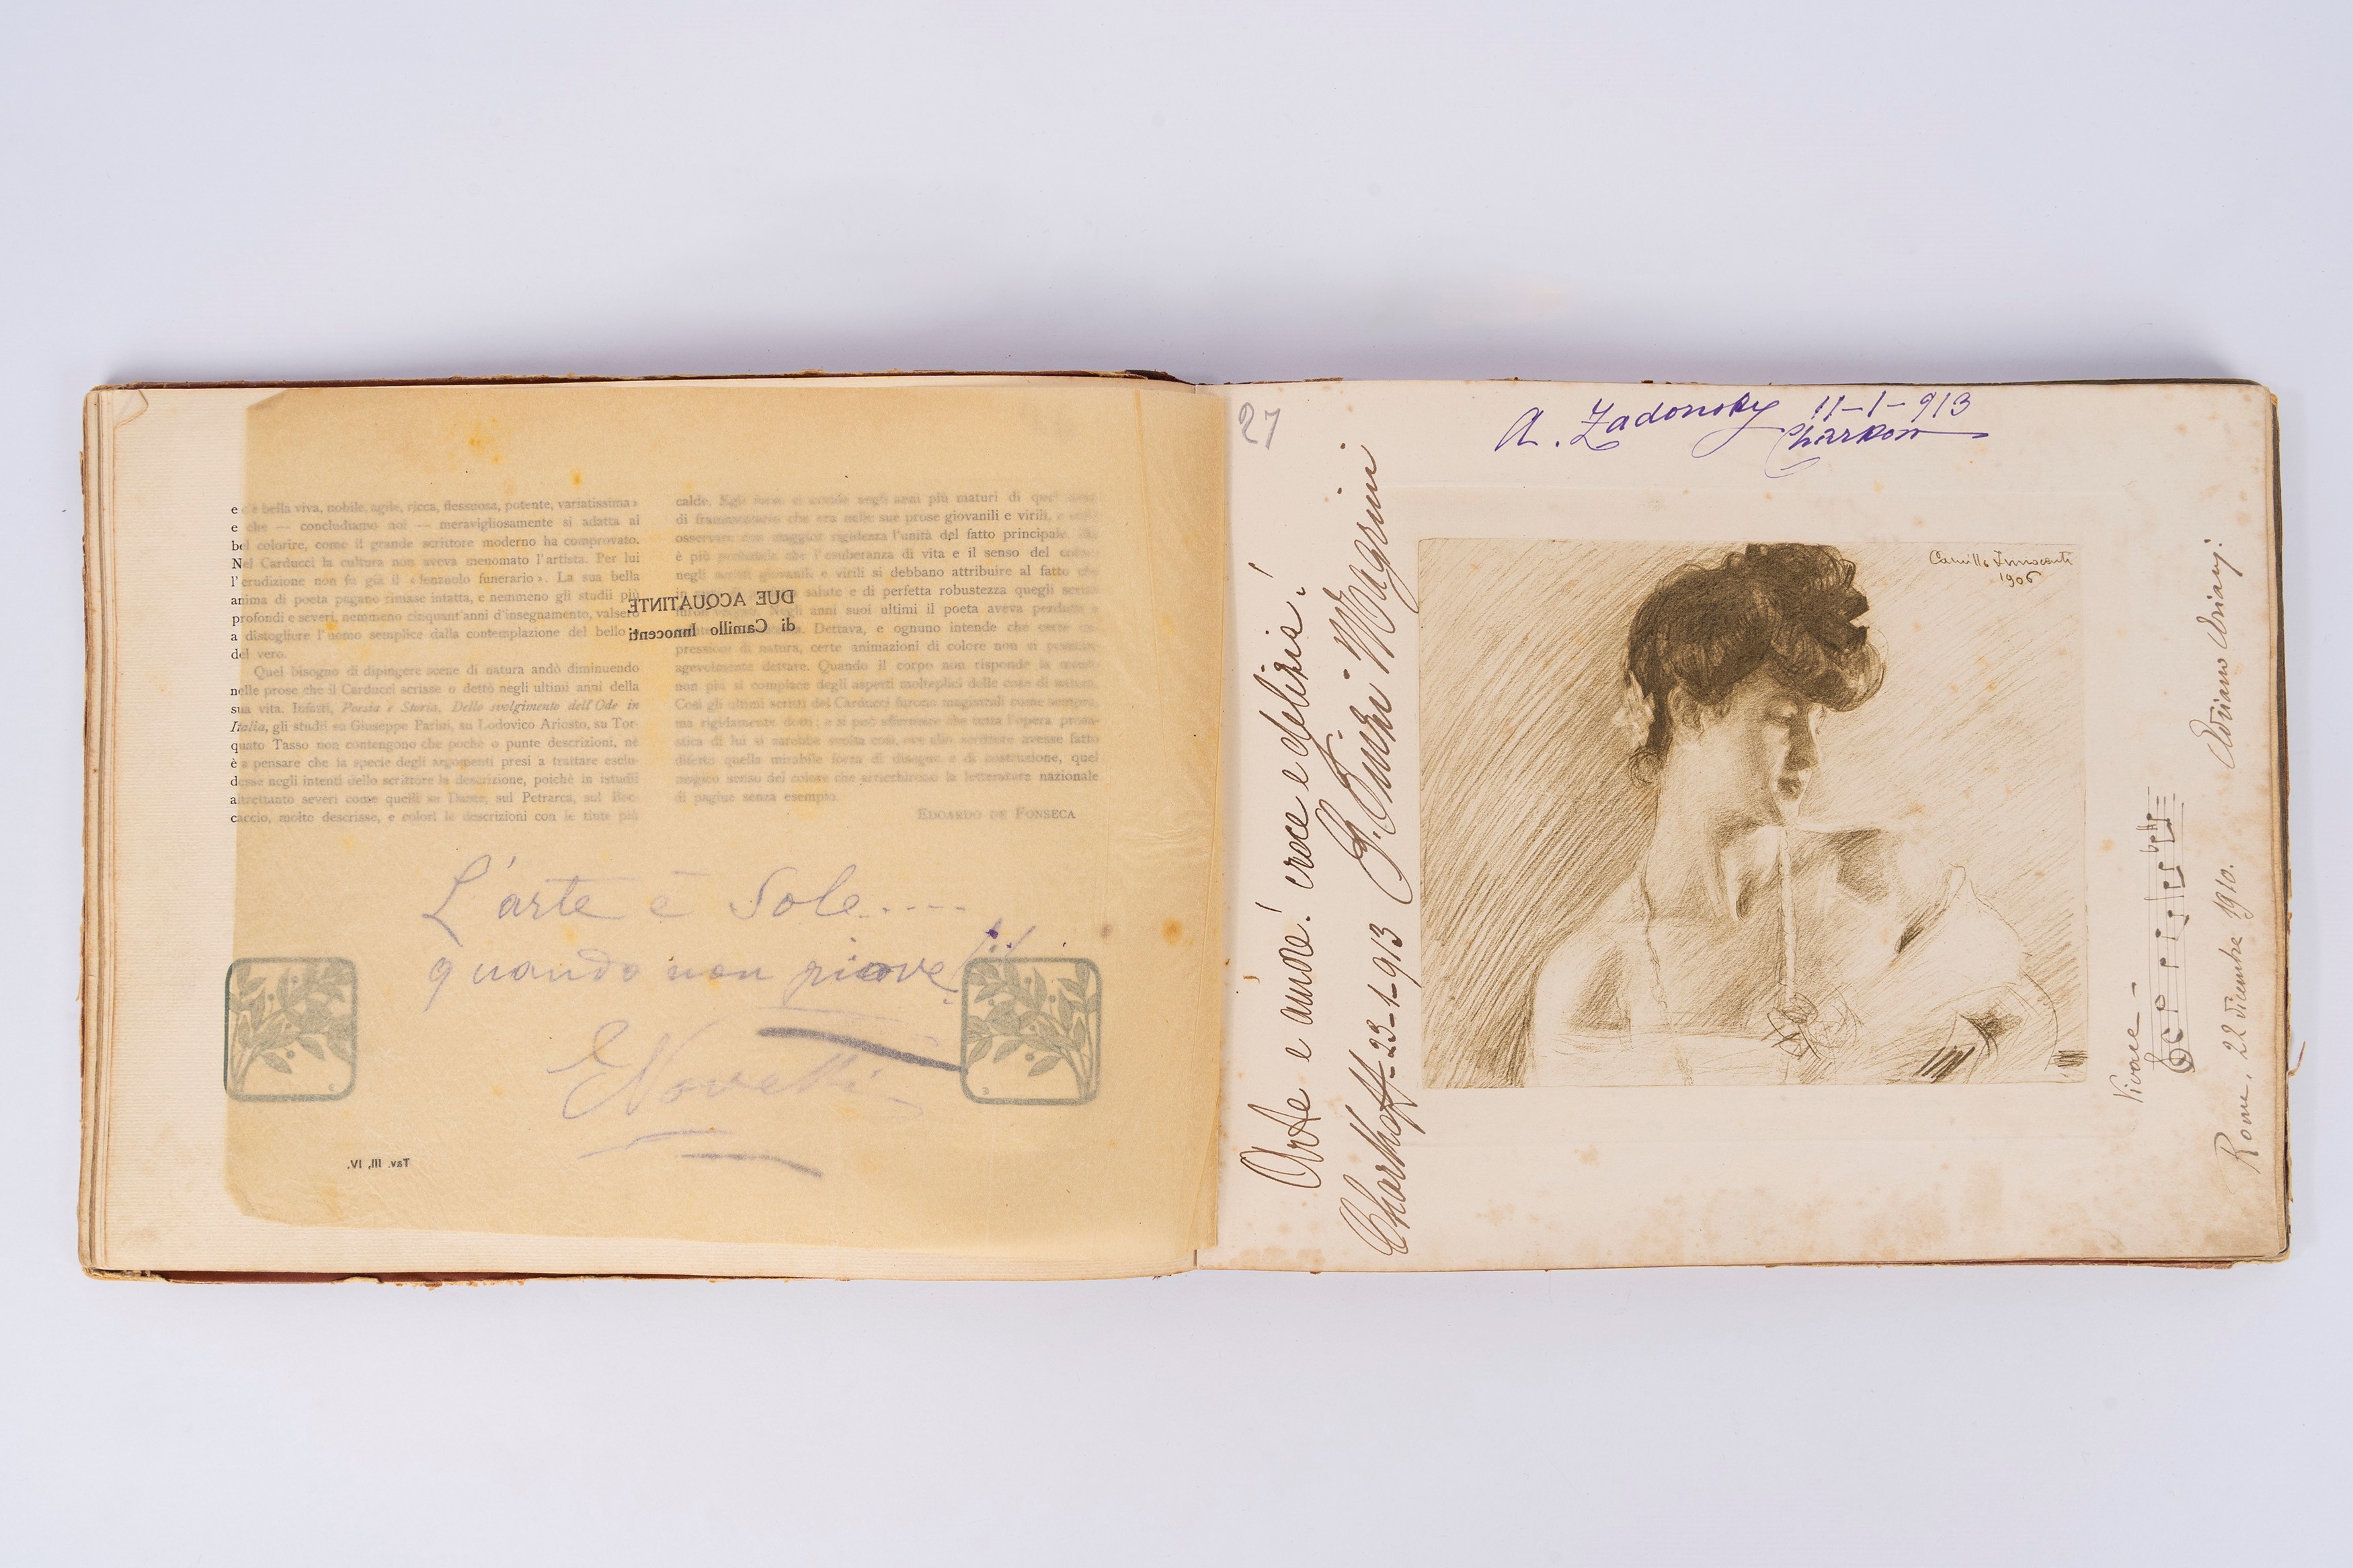 e c'è bella viva, nobile, agile, ricca, flessuosa, potente, variatissima»
e che — concludiamo noi — meravigliosamente si adatta al
bel colorire, come il grande scrittore moderno ha comprovato.
Nel Carducci la cultura non aveva menomato l'artista. Per lui
l'erudizione non fu già il «lenzuolo funerario». La sua bella
anima di poeta pagano rimase intatta, e nemmeno gli studii più
profondi e severi, nemmeno cinquant'anni d'insegnamento, valsero
a distogliere l'uomo semplice dalla contemplazione del bello e
del vero.
Quel bisogno di dipingere scene di natura andò diminuendo
nelle prose che il Carducci scrisse o dettò negli ultimi anni della
sua vita. Infatti, Poesia e Storia, Dello svolgimento dell'Ode in
Italia, gli studii su Giuseppe Parini, su Lodovico Ariosto, su Tor-
quato Tasso non contengono che poche o punte descrizioni, nè
è a pensare che la specie degli argomenti presi a trattare esclu-
desse negli intenti dello scrittore la descrizione, poichè in istudii
altrettanto severi come quelli su Dante, sul Petrarca, sul Boc-
caccio, molto descrisse, e colorì le descrizioni con le tinte più
calde. Egli forse si avvide negli anni più maturi di quel
di frammentario che era nelle sue prose giovanili e virili, e
osservare una maggior rigidezza l'unità del fatto principale.
è più probabile che l'esuberanza di vita e il senso del
negli scritti giovanili e virili si debbano attribuire al fatto che
salute e di perfetta robustezza quegli
Negli anni suoi ultimi il poeta aveva perduto
Dettava, e ognuno intende che certe es-
pressioni di natura, certe animazioni di colore non si possono
agevolmente dettare. Quando il corpo non risponde la mente
non più si compiace degli aspetti molteplici delle cose di natura.
Così gli ultimi scritti del Carducci furono magistrali come sempre,
ma rigidamente dotti; e si può affermare che tutta l'opera prosa-
stica di lui si sarebbe svolta così, ove allo scrittore avesse fatto
difetto quella mirabile forza di disegno e di costruzione, quel
magico senso del colore che arricchirono la letteratura nazionale
di pagine senza esempio.
EDOARDO DE FONSECA
DUE ACQUATINTE
di Camillo Innocenti
L'arte è Sole....
quando non piove!!
ENovelli
Tav. III, IV.
27
A. Zadonsky 11-1-913
Charkow
Arte e amore! croce e delizia!
Charkoff-23-1-913
Magrini
Camillo Innocenti
1906
Vivace -
Roma. 22 dicembre 1910. Adriano Ariani